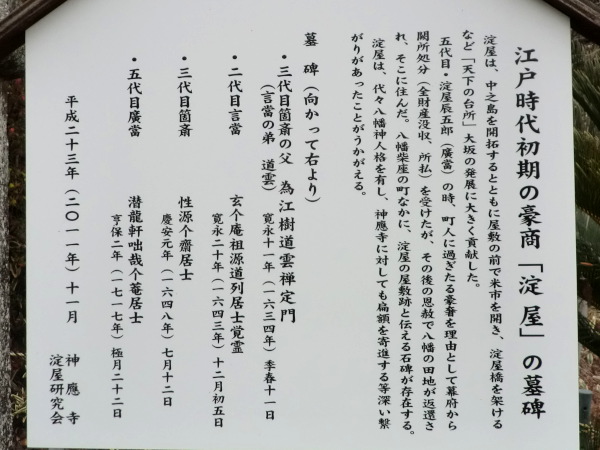 江戸時代初期の豪商「淀屋」の墓碑
淀屋は、中之島を開拓するとともに屋敷の前で米市を開き、淀屋橋を架ける
など「天下の台所」大坂の発展に大きく貢献した。
五代目・淀屋辰五郎（廣當）の時、町人に過ぎたる豪奢を理由として幕府から
闕所処分（全財産没収、所払）を受けたが、その後の恩赦で八幡の田地が返還さ
れ、そこに住んだ。八幡柴座の町なかに、淀屋の屋敷跡と伝える石碑が存在する。
淀屋は、代々八幡神人格を有し、神應寺に対しても扁額を寄進する等深い繋
がりがあったことがうかがえる。
墓碑（向かって右より）
・三代目箇斎の父 為江樹道雲禅定門
（言當の弟 道雲） 寛永十一年（一六三四年）季春十一日
・二代目言當 玄个庵祖源道列居士覚霊
寛永二十年（一六四三年）十二月初五日
・三代目箇斎 性源个齋居士
慶安元年（一六四八年）七月十二日
・五代目廣當 潜龍軒咄哉个菴居士
享保二年（一七一七年）極月二十二日
平成二十三年（二〇一一年）十一月
神應寺
淀屋研究会